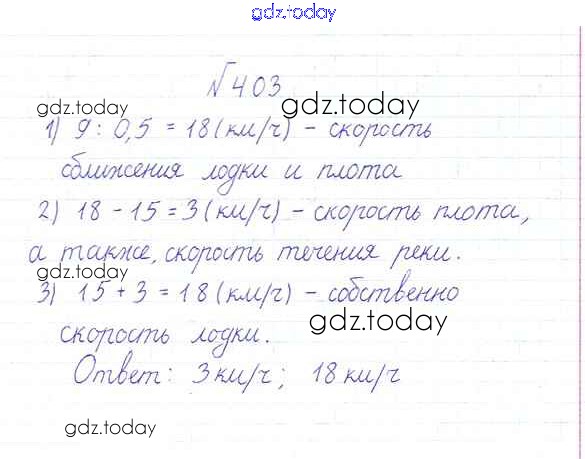 gdz.today
№403
gdz.today gdz.today
1) 9 : 0,5 = 18 (км/ч) - скорость
сближения лодки и плота
2) 18 - 15 = 3 (км/ч) - скорость плота,
а также, скорость течения реки.
gdz.today
3) 15 + 3 = 18 (км/ч) - собственно
gdz.today
скорость лодки.
Ответ: 3 км/ч; 18 км/ч
gdz.today